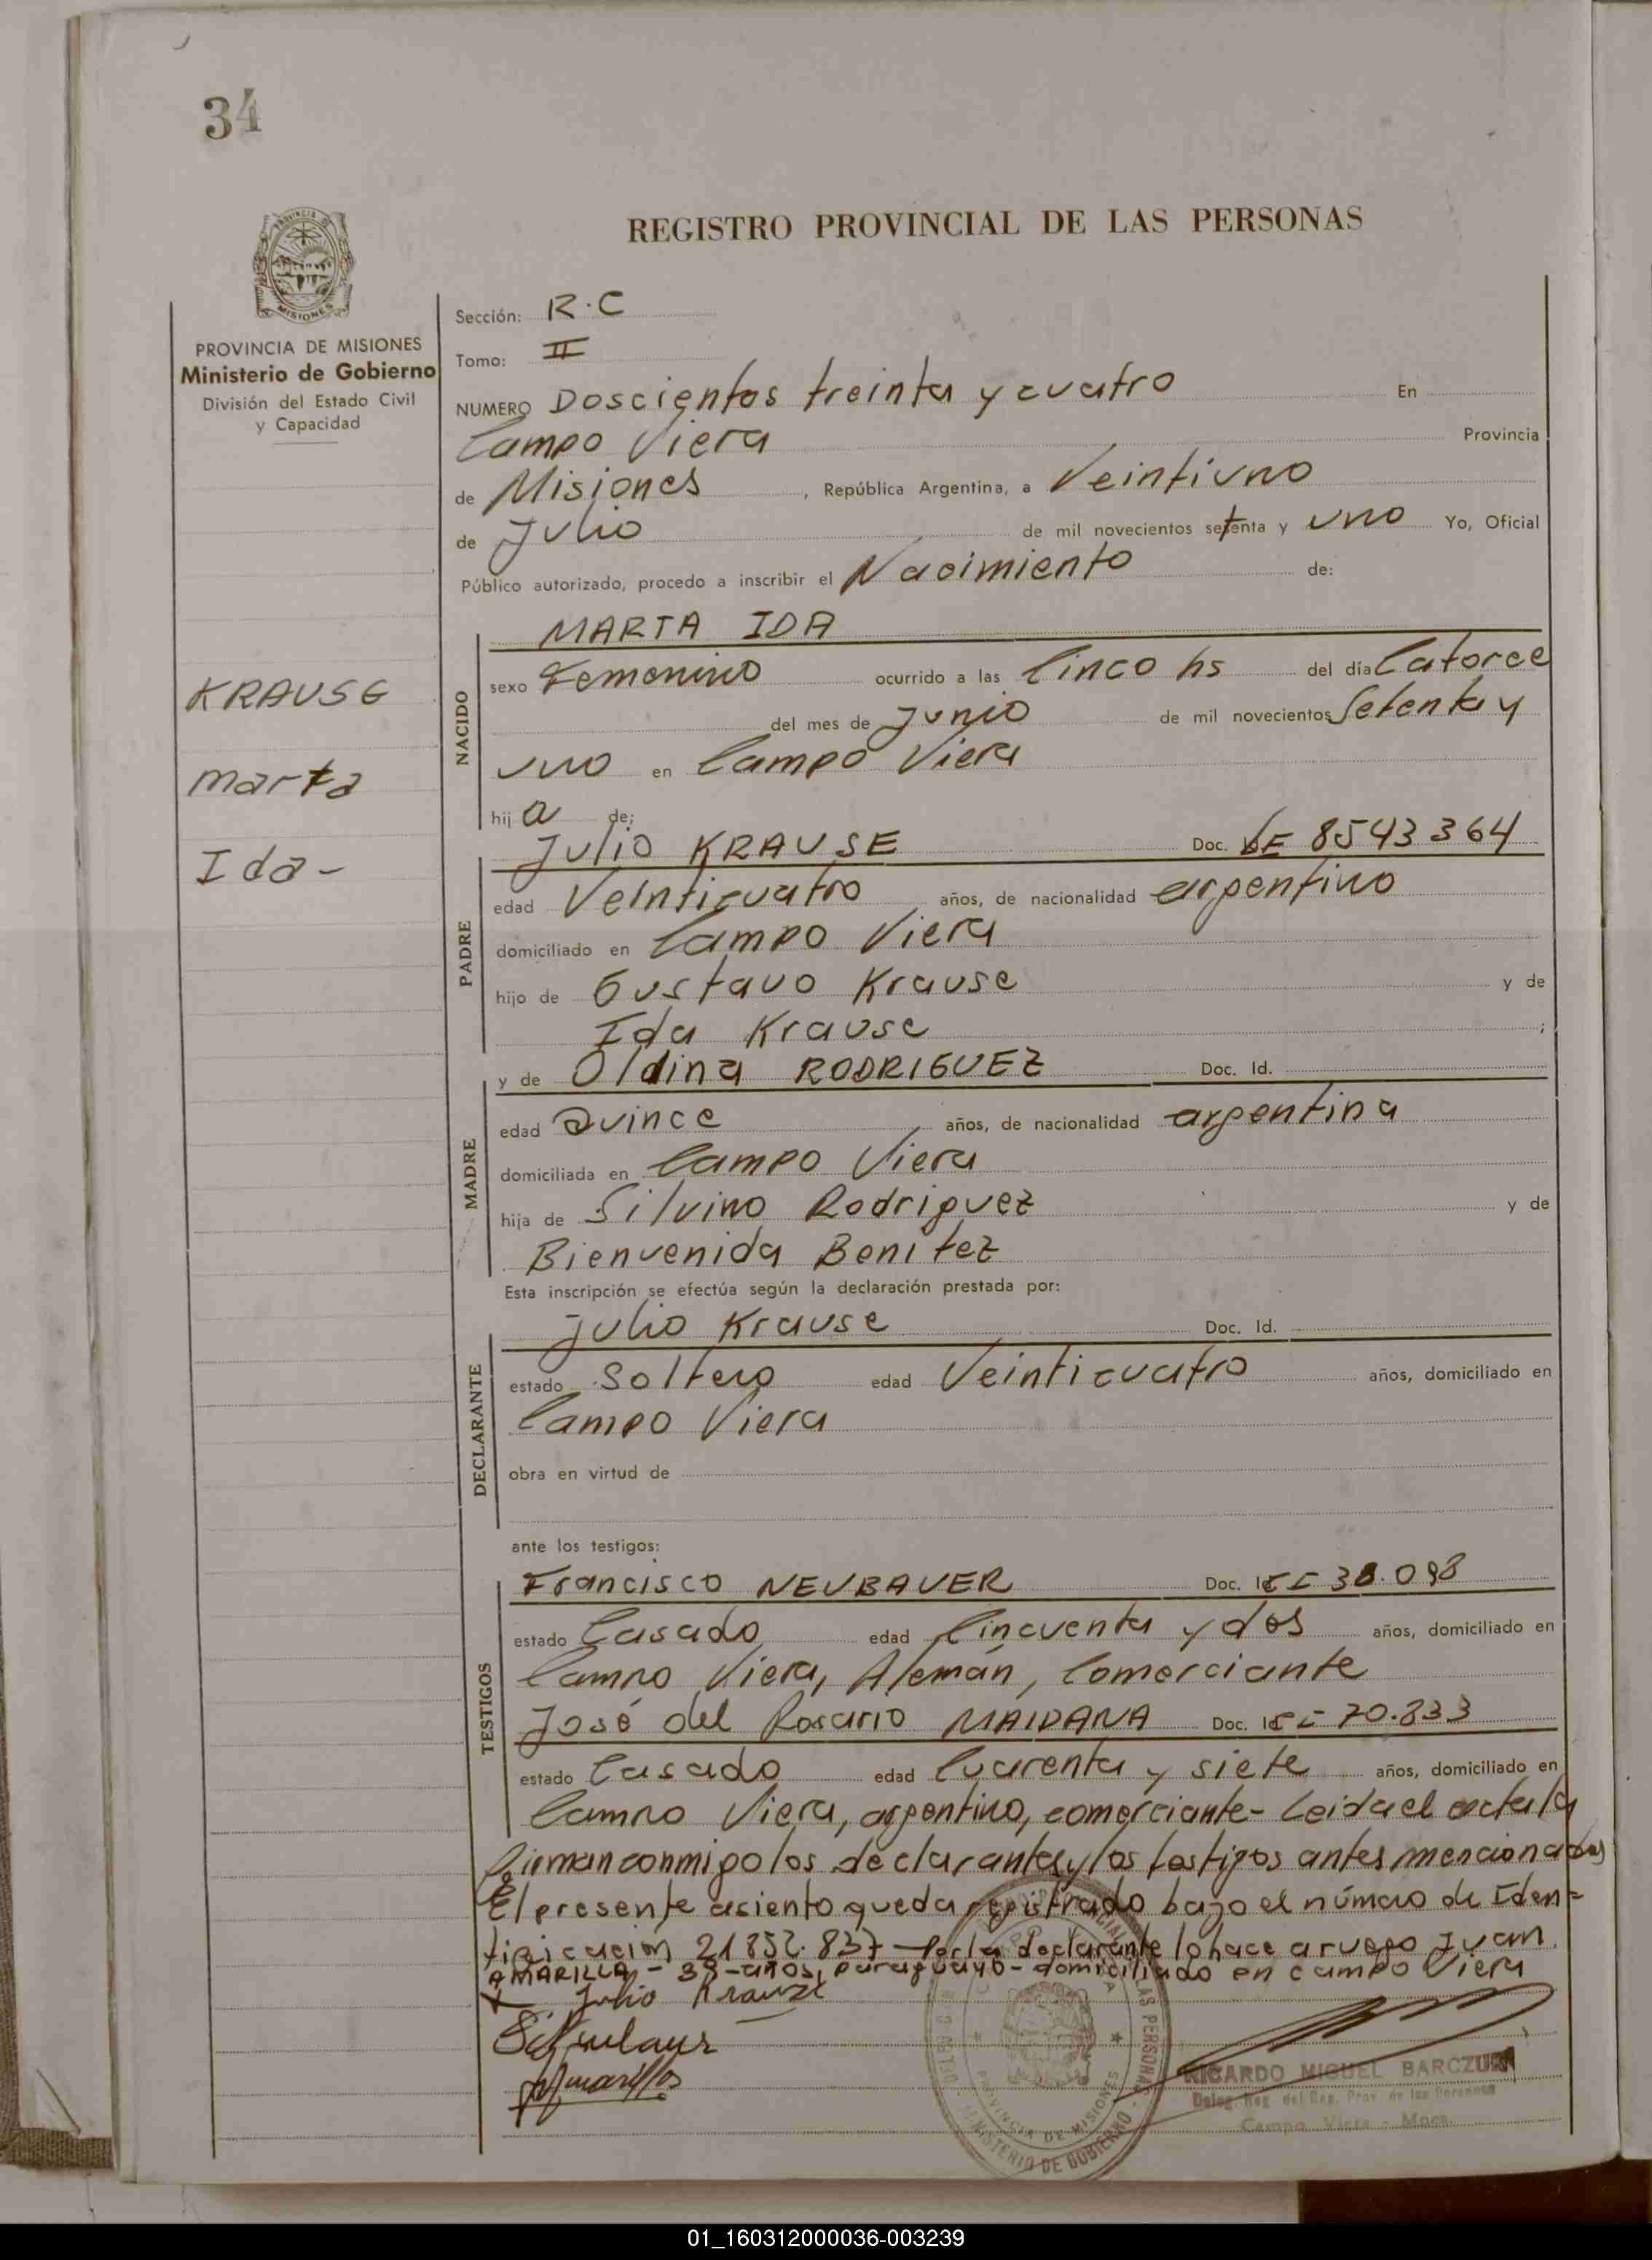 34
REGISTRO PROVINCIAL DE LAS PERSONAS
PROVINCIA DE MISIONES
Ministerio de Gobierno
División del Estado Civil
y Capacidad
KRAUSE
Marta
Ida -
Sección: R.C
Tomo: II
NUMERO Doscientos treinta y cuatro En
Campo Viera Provincia
de Misiones, República Argentina, a Veintiuno
de Julio de mil novecientos setenta y uno Yo, Oficial
Público autorizado, procedo a inscribir el Nacimiento de:
NACIDO
MARTA IDA
sexo Femenino ocurrido a las Cinco hs del día Catorce
del mes de Junio de mil novecientos Setenta y
uno en Campo Viera
hija de:
PADRE
Julio KRAUSE Doc. LE 8543364
edad Veinticuatro años, de nacionalidad argentino
domiciliado en Campo Viera
hijo de Gustavo Krause y de
Ida Krause ;
MADRE
y de Oldina RODRIGUEZ Doc. Id.
edad Quince años, de nacionalidad argentina
domiciliada en Campo Viera
hija de Silvino Rodriguez y de
Bienvenida Benitez
Esta inscripción se efectúa según la declaración prestada por:
DECLARANTE
Julio Krause Doc. Id.
estado Soltero edad Veinticuatro años, domiciliado en
Campo Viera
obra en virtud de
ante los testigos:
TESTIGOS
Francisco NEUBAUER Doc.
estado Casado edad Cincuenta y dos años, domiciliado en
Campo Viera, Alemán, Comerciante
José del Rosario MAIDANA Doc. 70.833
estado Casado edad Cuarenta y siete años, domiciliado en
Campo Viera, argentino, comerciante - Leida el acta la
firman conmigo los declarantes y los testigos antes mencionados
El presente asiento queda registrado bajo el número de Iden=
tificación 21852.837 - Por la declarante lo hace a ruego Juan
AMARILLA - 38 - años, paraguayo - domiciliado en Campo Viera
Julio Krause
REGISTRO PROVINCIAL DE LAS PERSONAS
MINISTERIO DE GOBIERNO
PROVINCIA DE MISIONES
RICARDO MIGUEL BARCZUK
Deleg. Reg. del Reg. Prov. de las Personas
Campo Viera - Mnes.
01_160312000036-003239